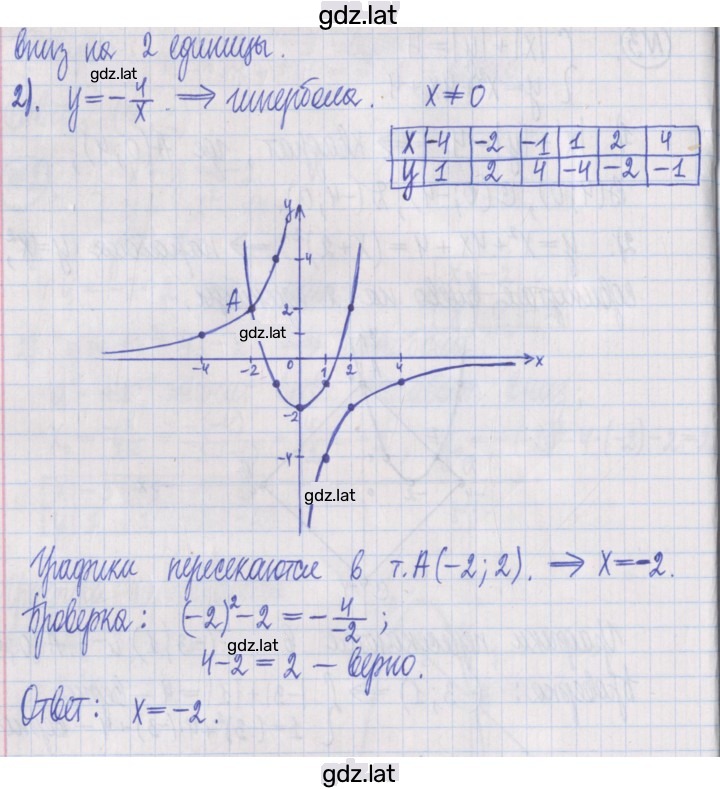 gdz.lat
вниз на 2 единицы.
gdz.lat
2). y = -4/x. ⇒ гипербола. x ≠ 0
x -4 -2 -1 1 2 4
y 1 2 4 -4 -2 -1
y
4
A 2
gdz.lat
-4 -2 0 1 2 4 x
-2
-4
gdz.lat
Графики пересекаются в т. A(-2; 2). ⇒ x = -2.
Проверка: (-2)² - 2 = - 4/-2 ;
gdz.lat
4 - 2 = 2 – верно.
Ответ: x = -2.
gdz.lat